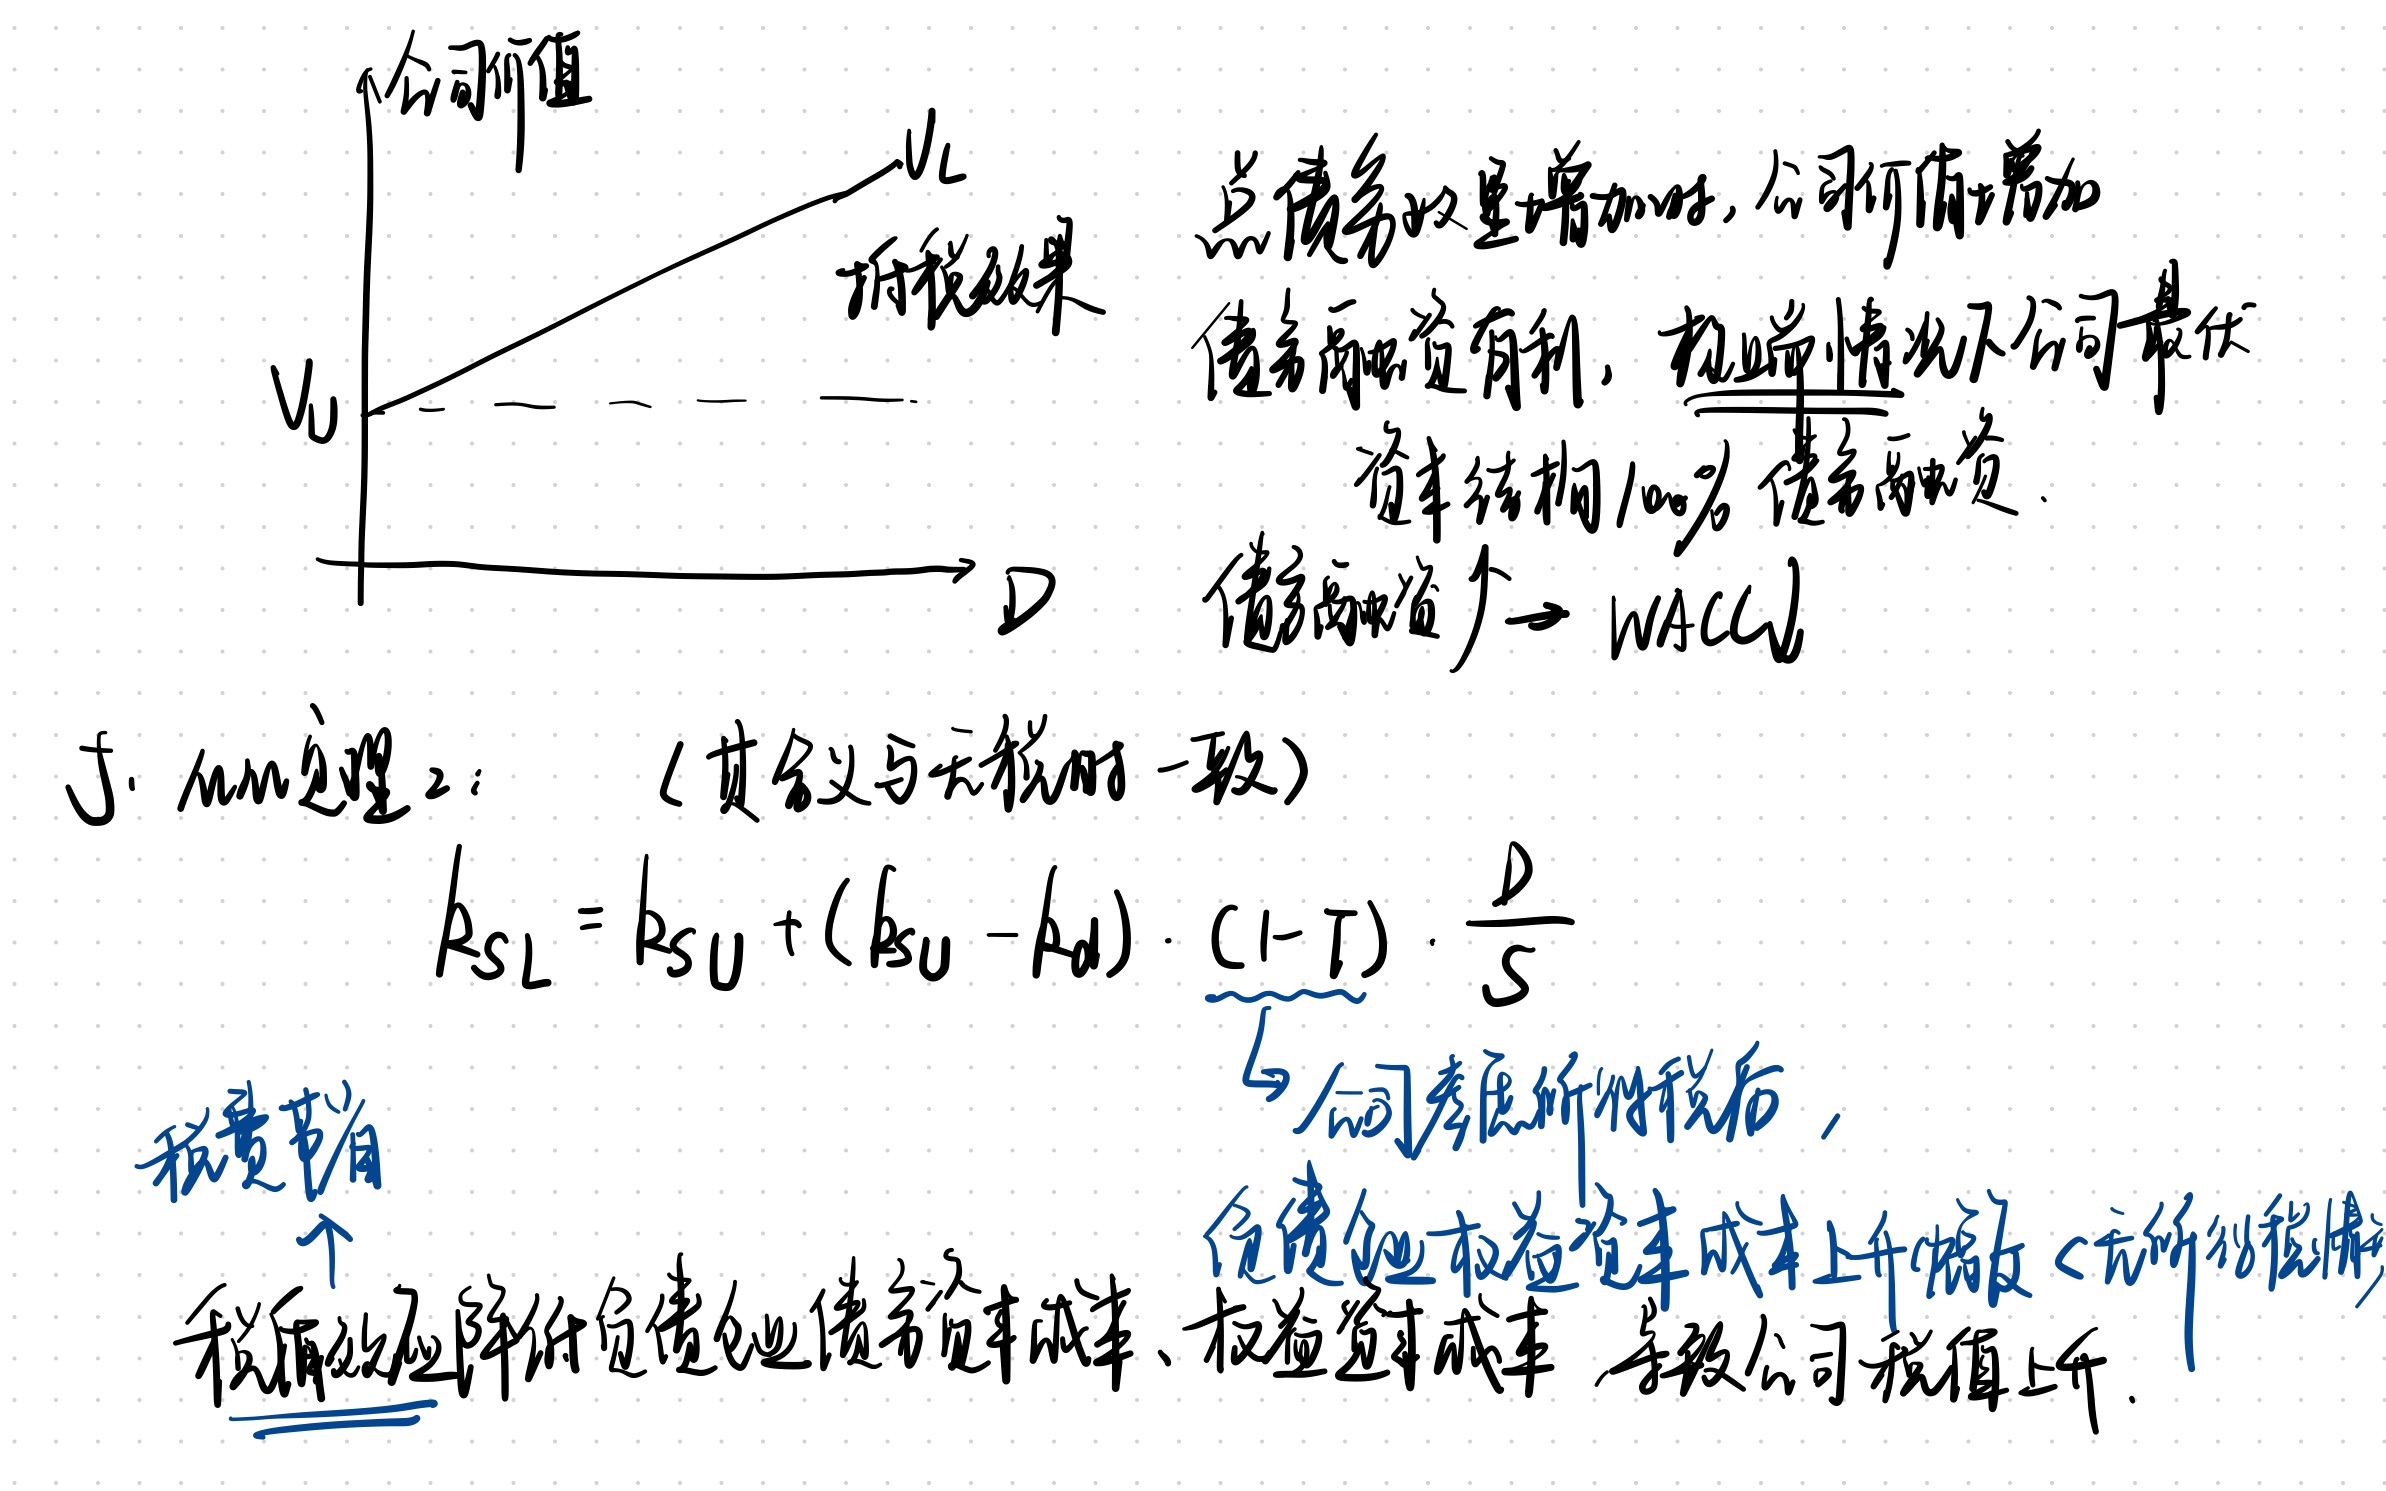 公司价值
V_L
V_U
D
总债务数量增加时，公司价值增加
债务融资有利，极端情况下公司最优
资本结构100%债务融资.
债务融资↑→WACC↓
J. mm定理2:（其含义与无税时一致）
k_{SL} = k_{SU} + (k_{SU} - k_d) · (1-T) · D/S
公司考虑所得税后，
税费节省
↑
负债企业权益资本成本上升幅度<无所得税情
降低负债企业债务资本成本、权益资本成本 导致公司价值上升.